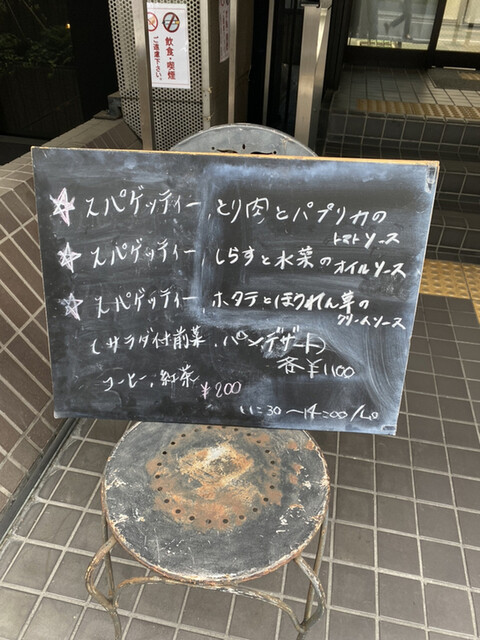 飲食・喫煙
ご遠慮下さい。
☆ スパゲッティー、とり肉とパプリカの
トマトソース
☆ スパゲッティー、しらすと水菜のオイルソース
☆ スパゲッティー、ホタテとほうれん草の
クリームソース
(サラダ付前菜、パン、デザート)
各¥1100
コーヒー、紅茶
¥200
11:30〜14:00/Lo